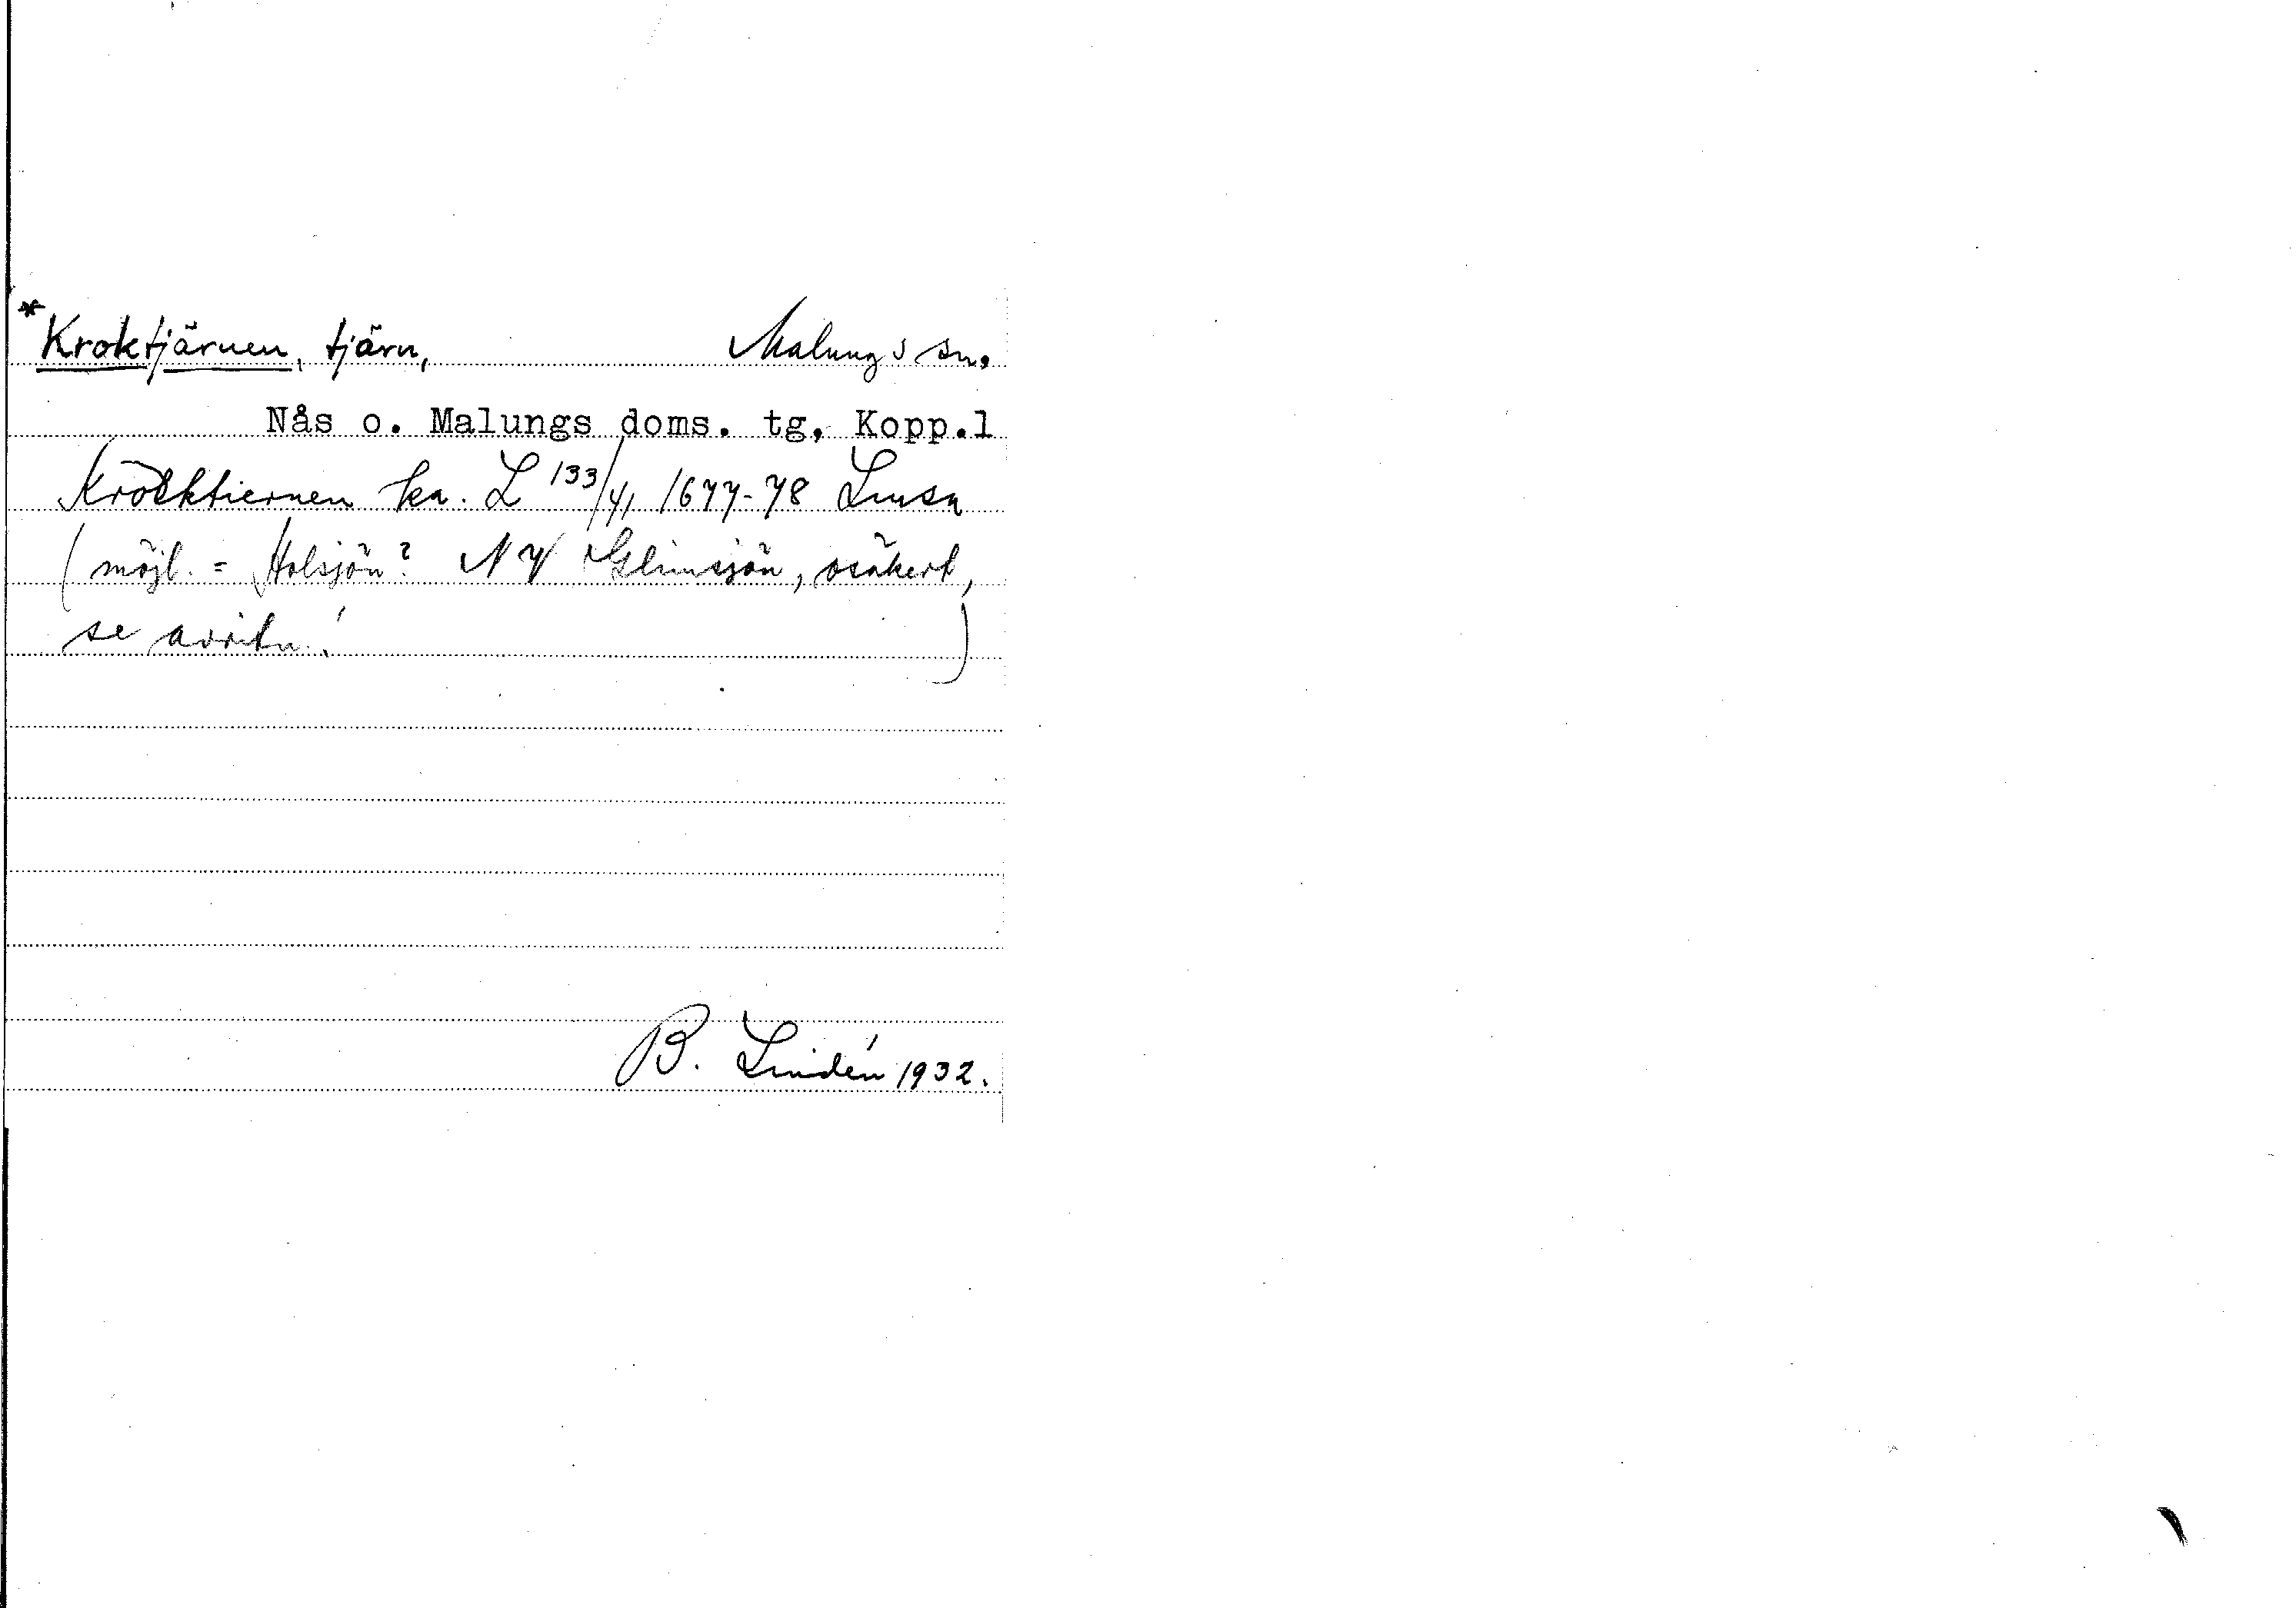 *Kroktjärnen, tjärn, Malungs sn.
Nås o. Malungs doms. tg, Kopp.l
Kroektiernen ka. L 133/41 1677-78 Lmsa
(möjl. = Holsjön? NV Glimsjön, osäkert,
se avritn.! )
B. Lindén 1932.